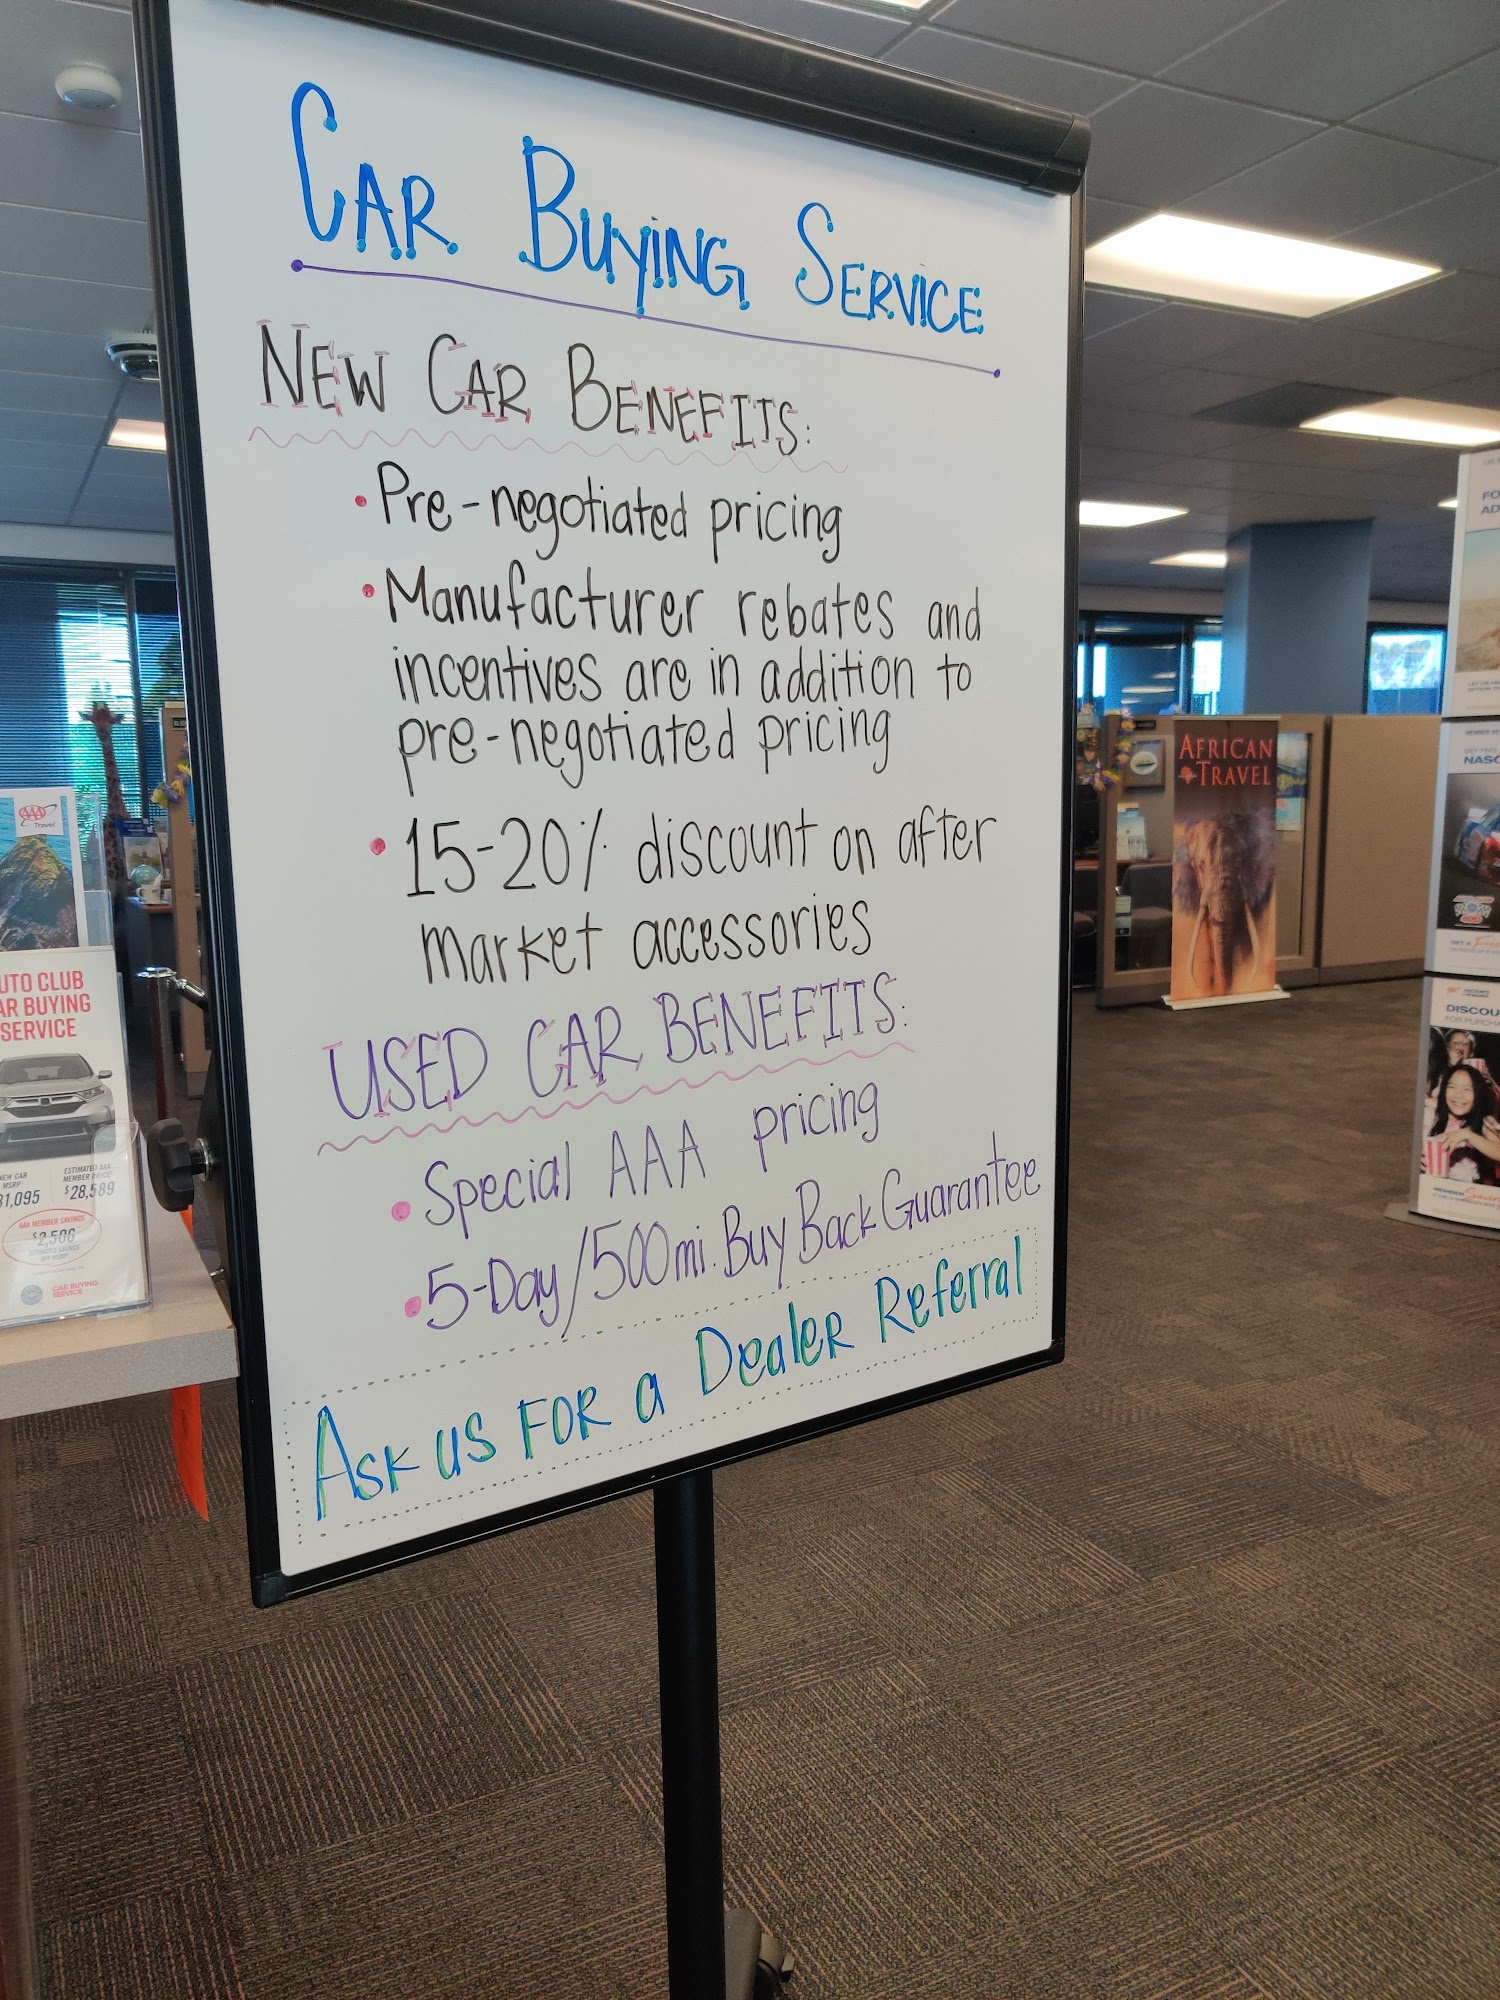 Car Buying Service
New Car Benefits:
• Pre-negotiated pricing
• Manufacturer rebates and
incentives are in addition to
pre-negotiated pricing
• 15-20% discount on after
market accessories
USED CAR BENEFITS:
• Special AAA pricing
• 5-Day/500mi. Buy Back Guarantee
Ask us for a Dealer Referral
AAA
Travel
UTO CLUB
AR BUYING
SERVICE
NEW CAR
MSRP
31,095
ESTIMATED AAA
MEMBER PRICE
$28,589
AAA MEMBER SAVINGS
$2,506
CAR BUYING
SERVICE
AFRICAN
TRAVEL
FO
AD
NASC
DISCOU
FOR PURCHA